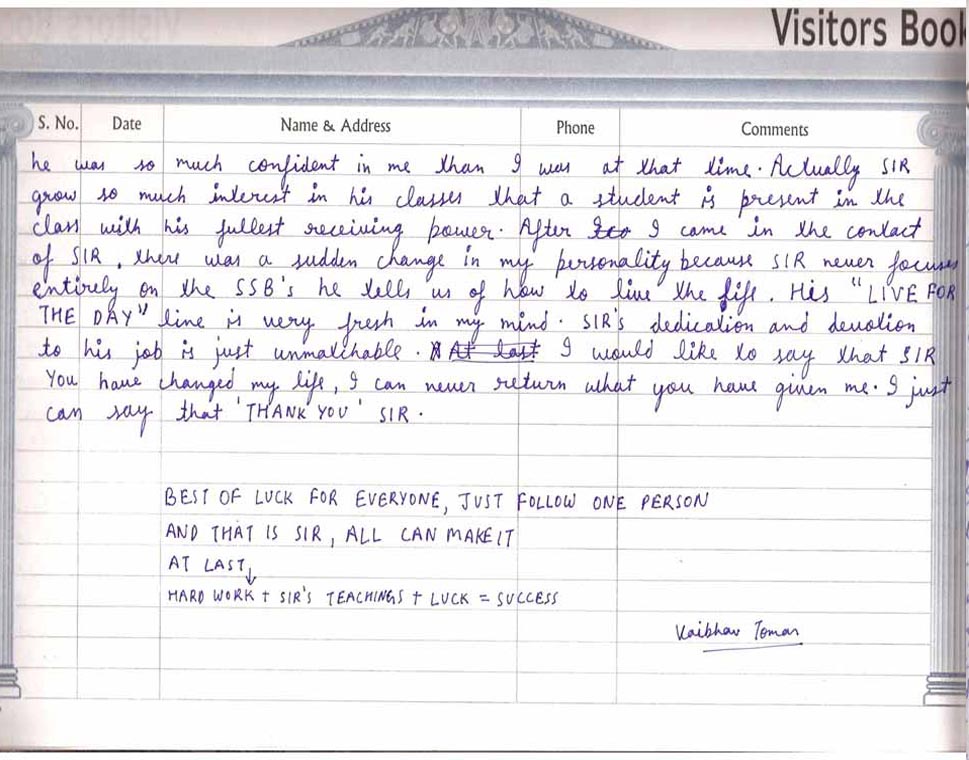 Visitors Book
S. No. Date Name & Address Phone Comments
he was so much confident in me than I was at that time. Actually SIR
grow so much interest in his classes that a student is present in the
class with his fullest receiving power. After I came in the contact
of SIR, there was a sudden change in my personality because SIR never focuses
entirely on the SSB's he tells us of how to live the life. His "LIVE FOR
THE DAY" line is very fresh in my mind. SIR's dedication and devotion
to his job is just unmatchable. At last I would like to say that SIR
You have changed my life, I can never return what you have given me. I just
can say that 'THANK YOU' SIR.
BEST OF LUCK FOR EVERYONE, JUST FOLLOW ONE PERSON
AND THAT IS SIR, ALL CAN MAKE IT
AT LAST,
↓
HARD WORK + SIR'S TEACHINGS + LUCK = SUCCESS
Vaibhav Tomar